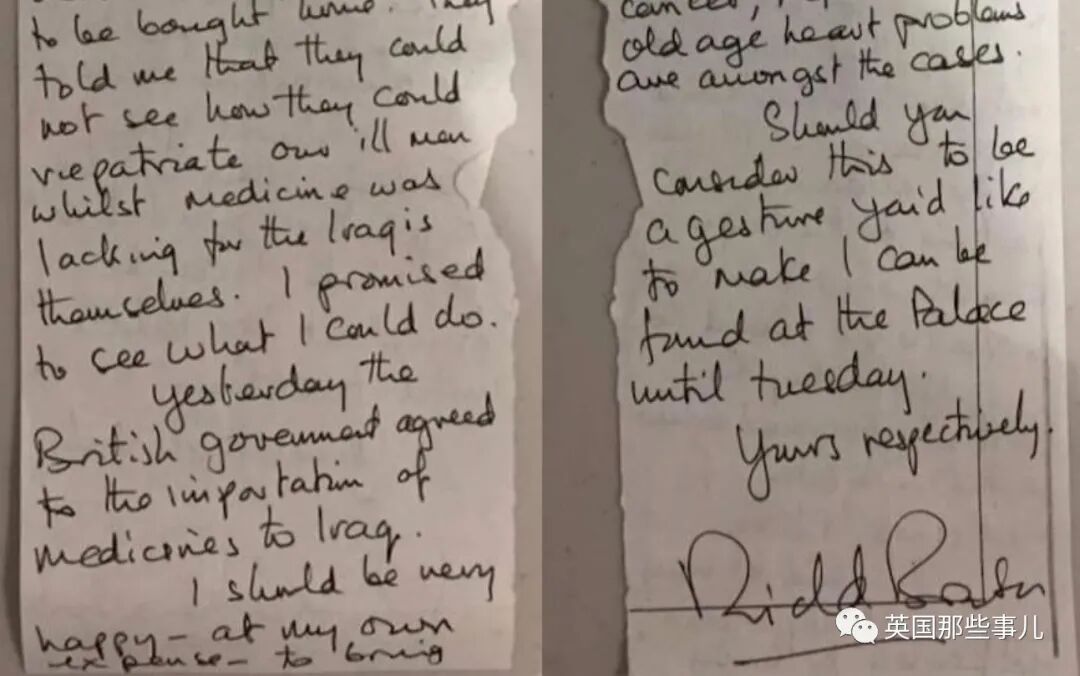 to be bought home. They
told me that they could
not see how they could
repatriate our ill men
whilst medicine was
lacking for the Iraqis
themselves. I promised
to see what I could do.
Yesterday the
British goverment agreed
to the importation of
medicines to Iraq.
I should be very
happy – at my own
expense – to bring
cancer,
old age heart problems
are amongst the cases.
Should you
consider this to be
a gesture you'd like
to make I can be
found at the Palace
until tuesday.
Yours respectively.
英国那些事儿